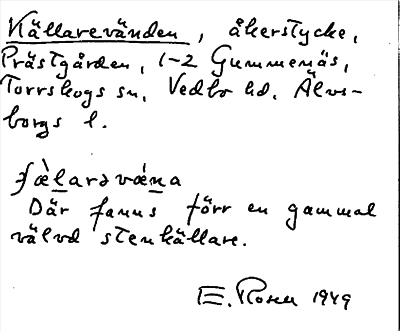 Källarevänden, åkerstycke,
Prästgården, 1-2 Gummenäs,
Torrskogs sn, Vedbo hd, Älvs-
borgs l.
ʃæ̀l̲arəvǽn̲a
Där fanns förr en gammal
välvd stenkällare.
E. Rosen 1949